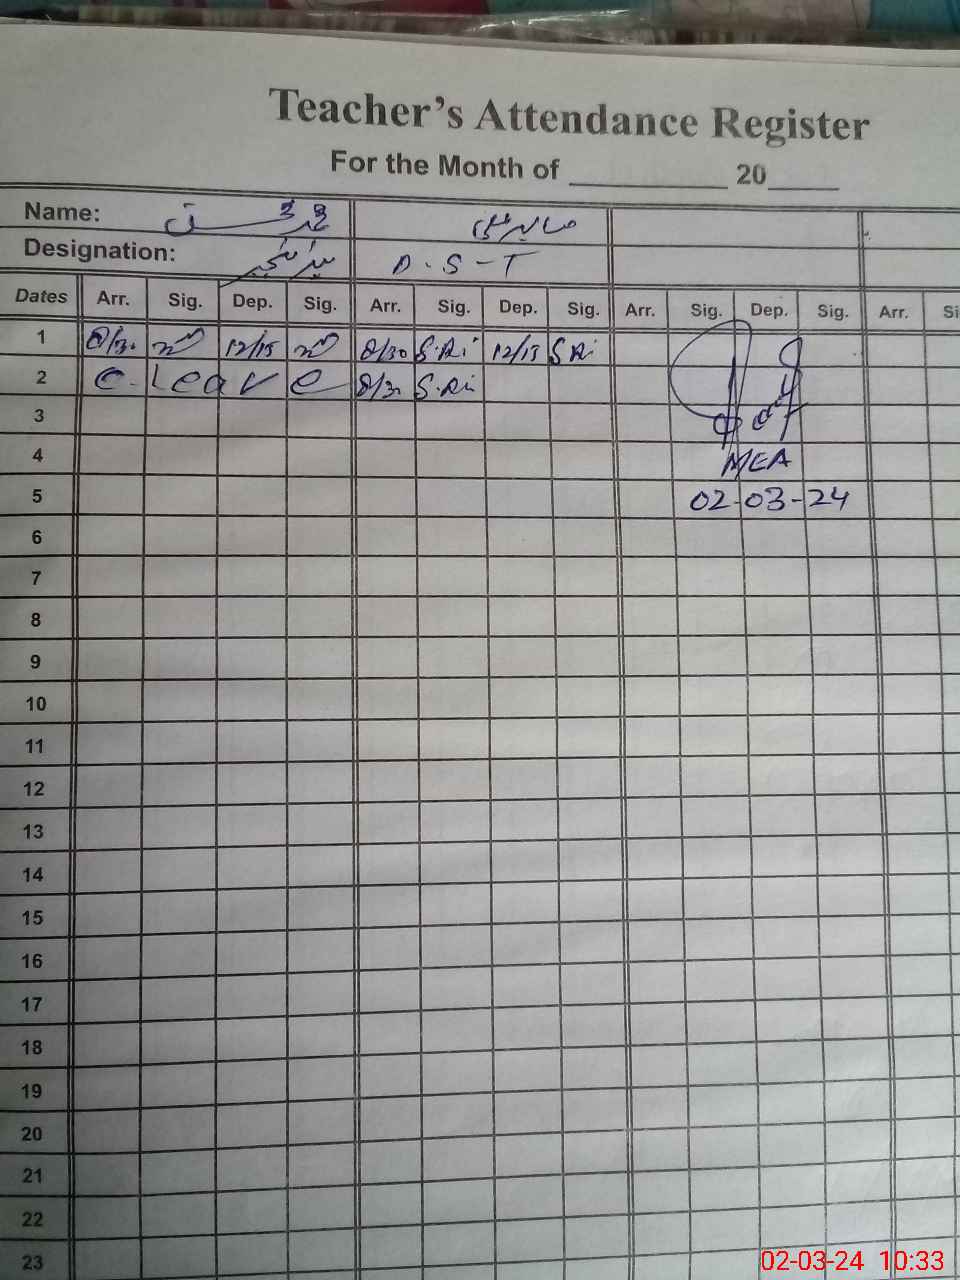 Teacher's Attendance Register
For the Month of ________ 20____
Name:
Designation: D-S-T
Dates Arr. Sig. Dep. Sig. Arr. Sig. Dep. Sig. Arr. Sig. Dep. Sig. Arr. Si
1 8/30 12/15 8/30 S.Ri 12/15 S Ri
2 C. Leave 8/30 S.Ri
3
4 MEA
5 02-03-24
6
7
8
9
10
11
12
13
14
15
16
17
18
19
20
21
22
23
02-03-24 10:33